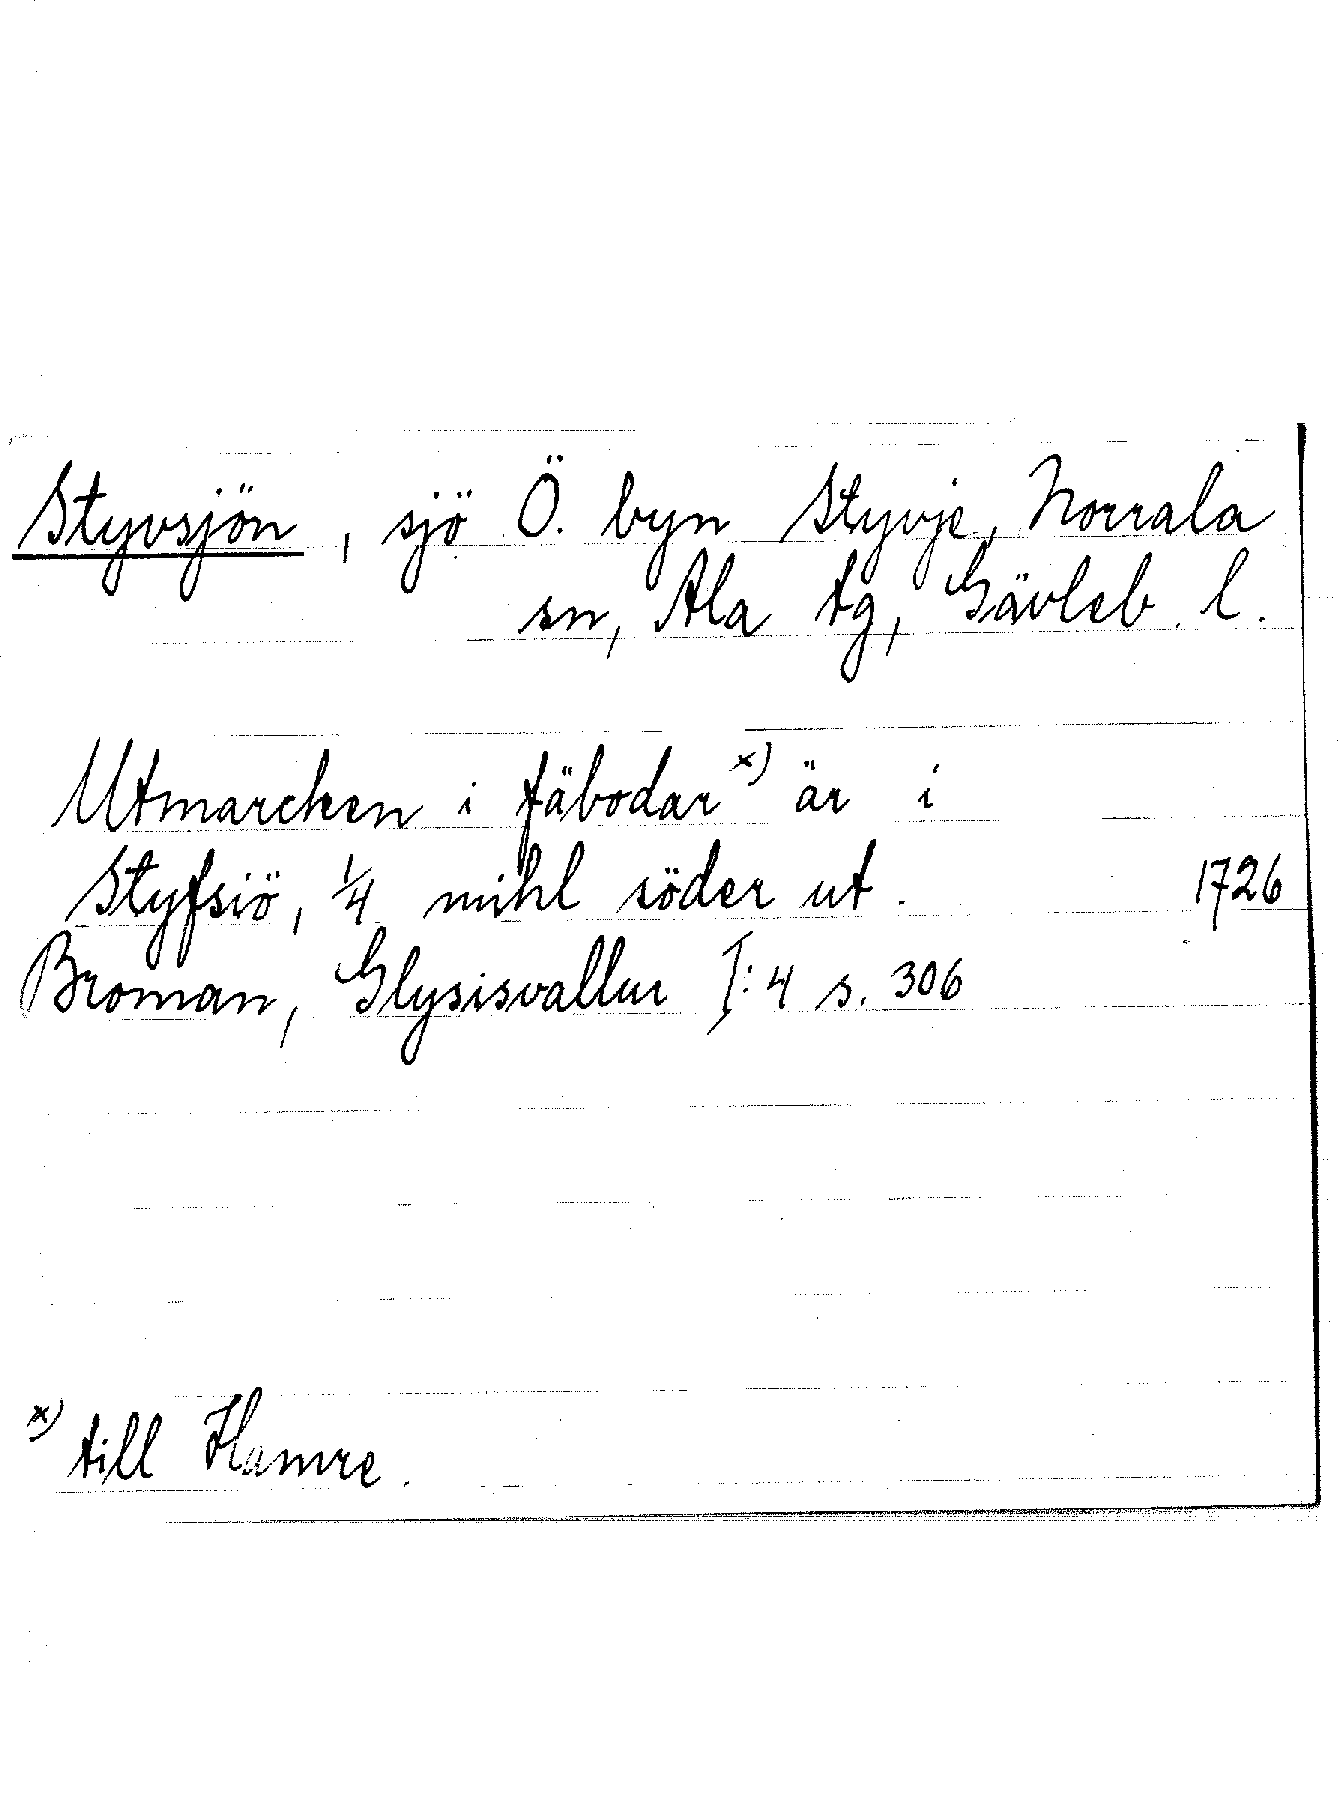 Styvsjön, sjö Ö. byn Styvje, Norrala
sn, Ala tg, Gävleb. l.
Utmarcken i fäbodar x) är i
Styfsiö, 1/4 mihl söder ut. 1726
Broman, Glysisvallur I:4 s. 306
x) till Hamre.